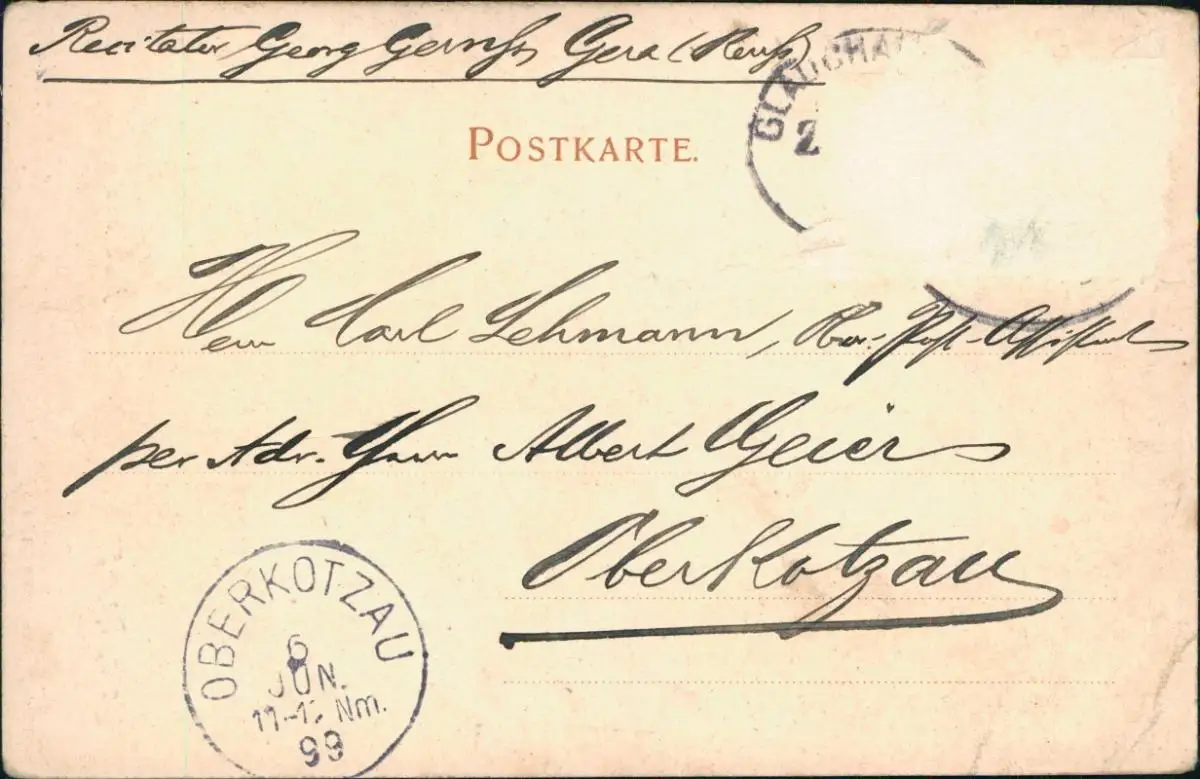 Recitator Georg Gera (Reuß)
GLAUCHA
2
POSTKARTE.
Herrn Karl Lehmann, Post-Assistent
per Adr. Herrn Albert Geier
Oberkotzau
OBERKOTZAU
6
JUN.
11-12 Nm.
99